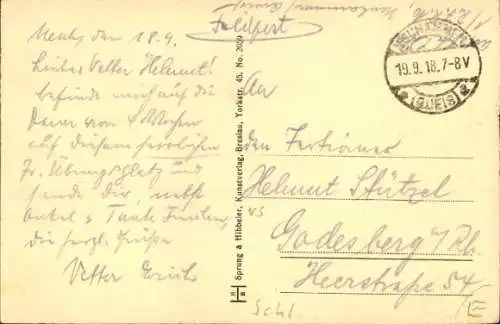 Feldpost
Neuh, den 18.9.
Lieber Vetter Helmut!
befinde mich auf die
Dauer von 4 Wochen
auf diesem herrlichen
Tr. Übungsplatz und
sende dir, nebst
Onkel u Tante
die herzl. Grüße
Vetter Erich
NEUHAMMER
19.9.18.7-8V
(QUEIS)
Sprung & Hibbeler, Kunstverlag, Breslau, Yorckstr. 45. No. 2029
H
An
den Tertianer
Helmut Stützel
Godesberg a/Rh.
Heerstraße 54
Schl.